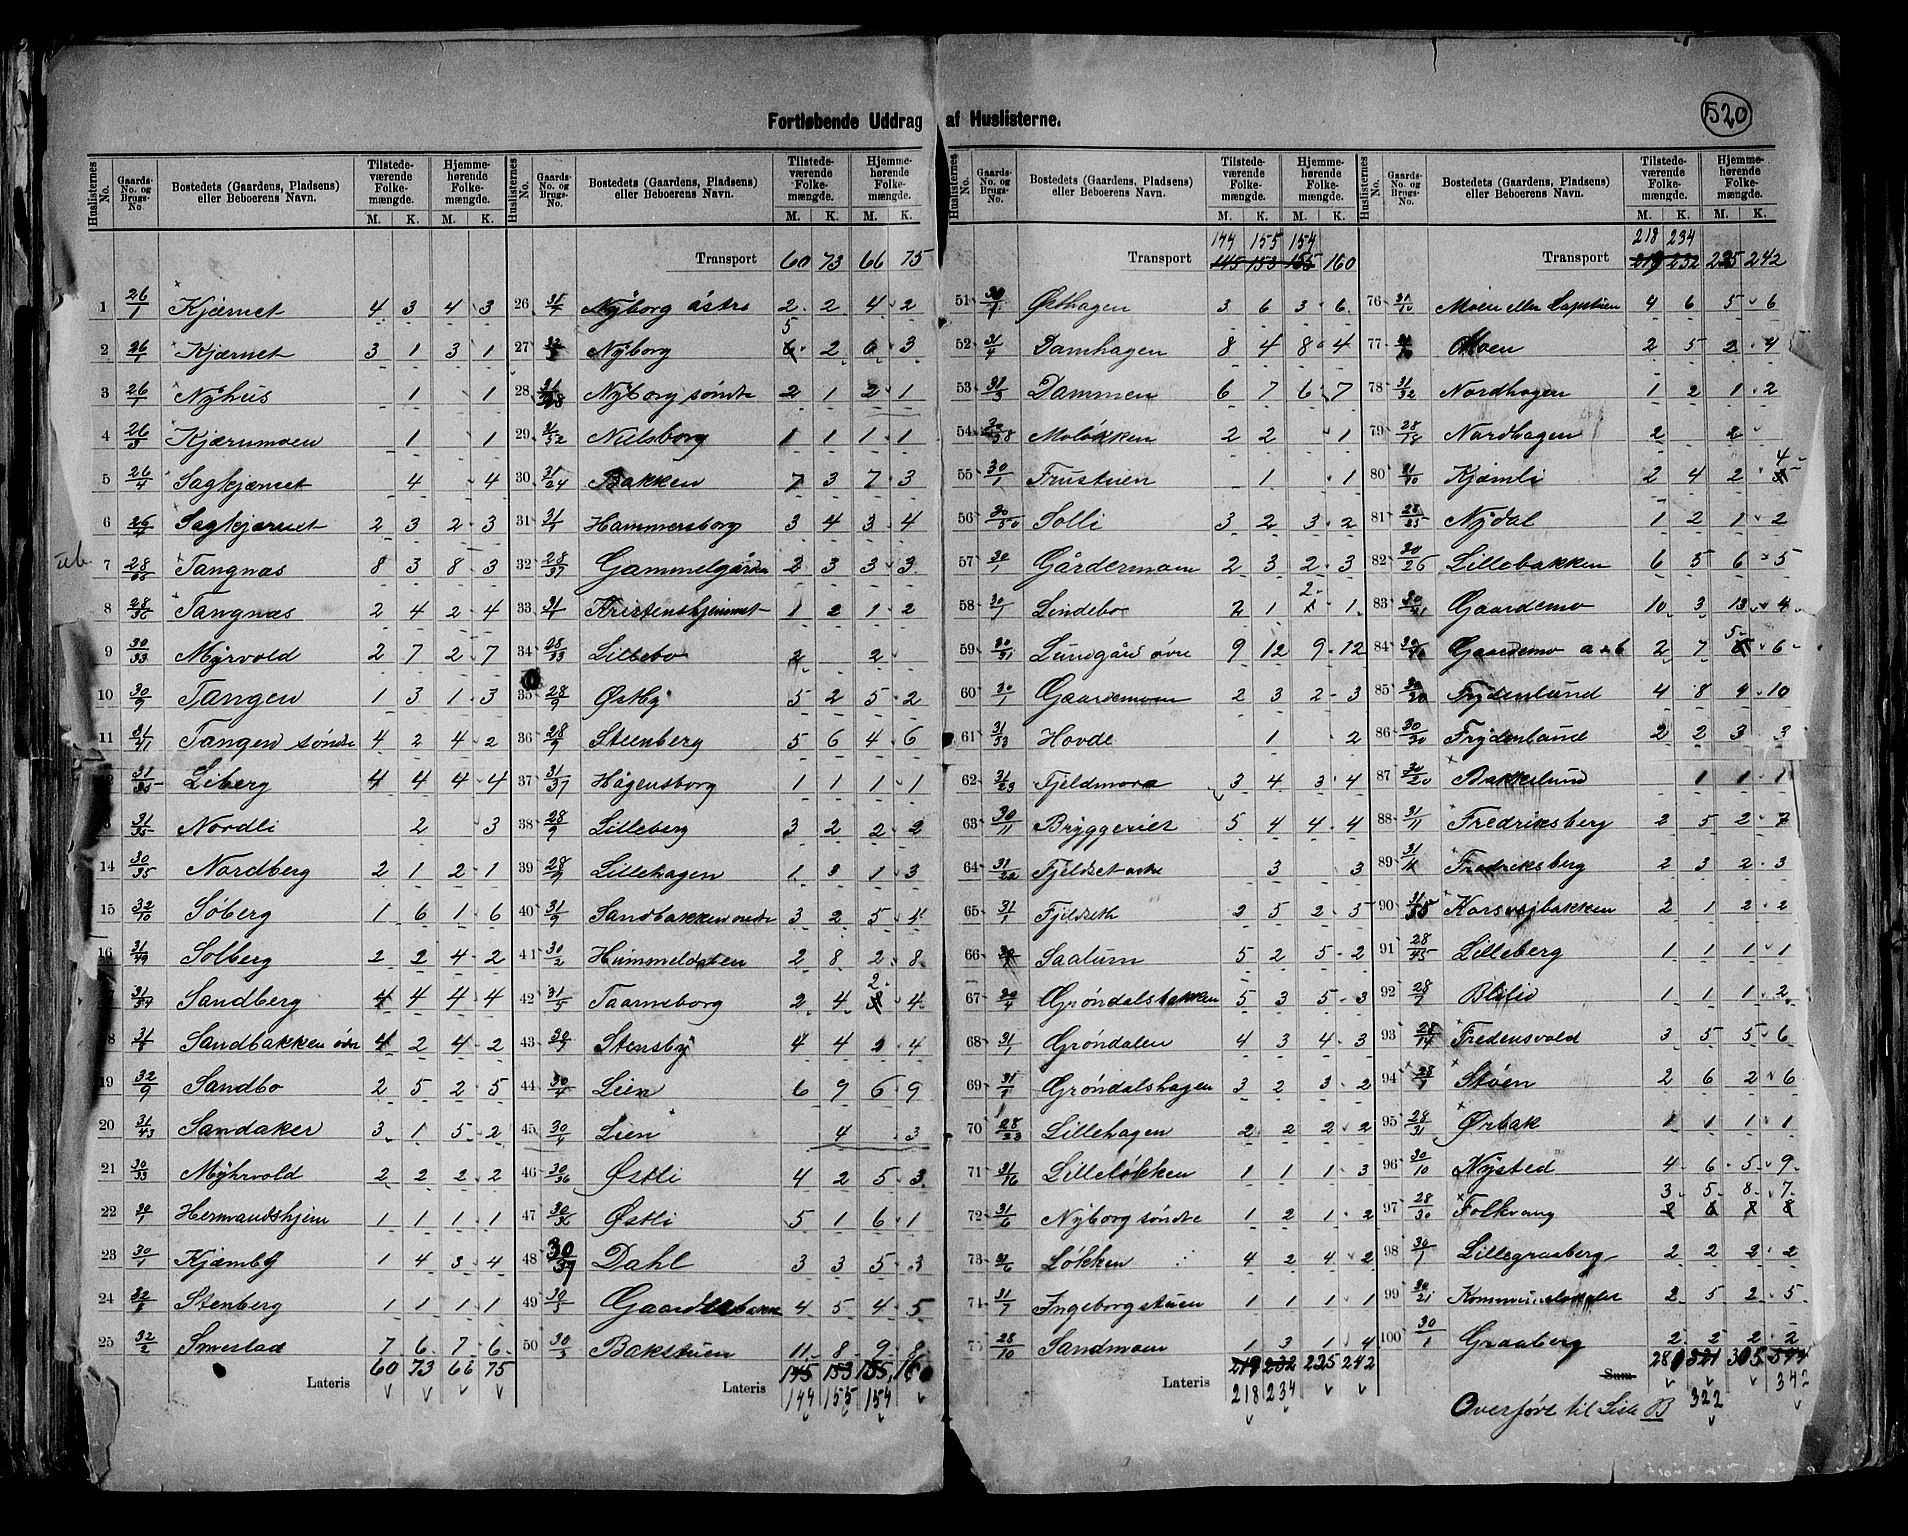 520
Fortløbende Uddrag af Huslisterne.
Huslisternes No. | Gaards-No. og Brugs-No. | Bostedets (Gaardens, Pladsens) eller Beboerens Navn. | Tilstedeværende Folkemængde. M. K. | Hjemmehørende Folkemængde. M. K.
1 26/1 Kjærnet 4 3 4 3
2 26/1 Kjærnet 3 1 3 1
3 26/1 Nyhus 1 1
4 26/3 Kjærnmoen 1 1
5 26/4 Sagkjærnet 4 4
6 26/4 Sagkjærnet 2 3 2 3
7 28/ Tangnæs 8 3 8 3
8 28/36 Tangnæs 2 4 2 4
9 30/33 Myrvold 2 7 2 7
10 30/9 Tangen 1 3 1 3
11 31/41 Tangen søndre 4 2 4 2
31/ Liberg 4 4 4 4
31/35 Nordli 2 3
14 30/35 Nordberg 2 1 2 1
15 32/10 Søberg 1 6 1 6
16 31/49 Solberg 2 2 4 2
31/ Sandberg 4 4 4 4
8 31/8 Sandbakken øvre 4 2 4 2
19 32/9 Sandbo 2 5 2 5
20 31/43 Sandaker 3 1 5 2
21 30/33 Myhrvold 2 2 2 2
22 30/1 Hermandshjem 1 1 1 1
23 30/1 Kjæmby 1 4 3 4
24 32/8 Stenberg 1 1 1 1
25 32/2 Smestad 7 6 7 6
Lateris 60 73 66 75
Transport 60 73 66 75
26 31/4 Nyborg østre 2 2 4 2
27 32/ Nyborg 5 6 2 6 3
28 31/28 Nyborg søndre 2 1 2 1
29 31/32 Nilsborg 1 1 1 1
30 31/24 Bakken 7 3 7 3
31 31/1 Hammersborg 3 4 3 4
32 28/37 Gammelgården 2 3 3 3
33 31/1 Kristenshjemmet 1 2 1 2
34 28/33 Lillebo 2 2
35 28/9 Østby 5 2 5 2
36 28/9 Steenberg 5 6 4 6
37 31/37 Hågensborg 1 1 1 1
38 28/9 Lilleberg 3 2 2 2
39 28/9 Lillehagen 1 3 1 3
40 31/9 Sandbakken nedre 3 2 5 4
41 30/2 Hummeldalen 2 8 2 8
42 31/5 Taarneborg 2 4 2 4
43 30/7 Stensby 4 4 2 4
44 30/4 Lien 6 9 6 9
45 30/4 Lien 4 3
46 30/36 Østli 4 2 5 3
47 30/36 Østli 5 1 6 1
48 30/39 Dahl 3 3 5 3
49 30/3 Gaardersbakken 4 5 4 5
50 30/3 Bakstuen 11 8 9 8
Lateris 145 153 155 160
144 155 154
144 155 154
Transport 145 153 155 160
51 30/1 Østhagen 3 6 3 6
52 31/4 Damhagen 8 4 8 4
53 31/3 Dammen 6 7 6 7
54 30/38 Moløkken 2 2 1
55 30/1 Frustuen 1 1
56 30/50 Solli 3 2 3 2
57 30/1 Gårdermoen 2 3 2 3
58 30/1 Lindebo 2 1 2 1
59 30/31 Lundgård øvre 9 12 9 12
60 30/1 Gaardemoen 2 3 2 3
61 31/33 Hovde 1 2
62 31/23 Fjeldmora 3 4 3 4
63 30/11 Bryggeriet 5 4 4 4
64 31/22 Fjeldset østre 3 3
65 31/1 Fjeldseth 2 5 2 5
66 Saatum 5 2 5 2
67 30/4 Grøndalsbakken 5 3 5 3
68 31/1 Grøndalen 4 3 4 3
69 31/1 Grøndalshagen 3 2 3 2
70 28/23 Lillehagen 2 2 2 2
71 31/16 Lilleløkken 1 1 1 3
72 31/6 Nyborg søndre 1 2 1 2
73 31/6 Løkken 4 2 4 2
74 31/7 Ingeborgstuen 1 1 1 1
75 28/10 Sandmoen 1 3 1 4
Lateris 219 232 225 242
218 234
218 234
Transport 219 232 225 242
76 31/10 Moen eller Lapstuen 4 6 5 6
77 Moen 2 5 2 4
78 31/32 Nordhagen 1 2 1 2
79 28/18 Nordhagen 2 2
80 31/10 Kjæmli 2 4 2 4
81 28/35 Nydal 1 2 1 2
82 30/26 Lillebakken 6 5 6 5
83 30/41 Gaardemo 10 3 13 4
84 Gaardemo a+b 2 7 5 6
85 30/20 Frydenlund 4 8 4 10
86 30/20 Frydenlund 2 2 3 3
87 30/20 Bakkelund 1 1 1
88 31/11 Fredriksberg 2 5 2 7
89 31/11 Fredriksberg 2 3 2 3
90 31/35 Korsvejbakken 2 1 2 2
91 28/45 Lilleberg 1 1 1 1
92 28/7 Blilid 1 1 1 2
93 28/14 Fredensvold 3 5 5 6
94 28/1 Støen 2 6 2 6
95 28/31 Ørbak 1 1 1 1
96 30/10 Nysted 4 6 5 9
97 28/30 Folkvang 3 5 8 7
98 30/1 Lillegrasberg 2 2 2 2
99 30/21 Kommunelokalet 2 5 2 5
100 30/1 Graaberg 2 2 2 2
Sum 280 321 305 344
322 342
Overført til Liste B